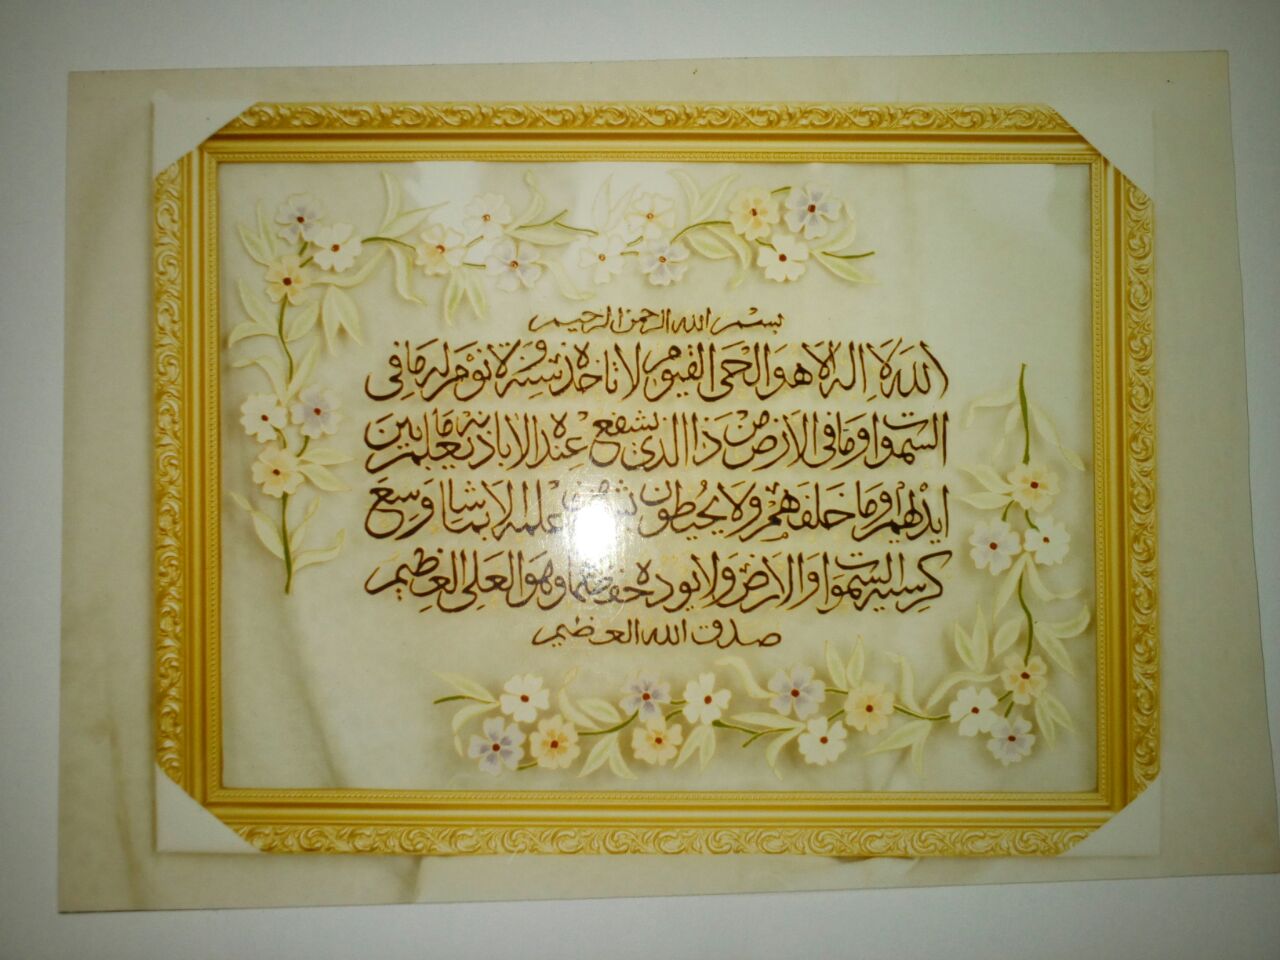 بسم الله الرحمن الرحيم
الله لا اله الا هو الحي القيوم لا تاخذه سنة ولا نوم له ما في
السموات وما في الارض من ذا الذي يشفع عنده الا باذنه يعلم ما بين
ايديهم وما خلفهم ولا يحيطون بشئ من علمه الا بما شا وسع
كرسيه السموات والارض ولا يوده حفظهما وهو العلي العظيم
صدق الله العظيم